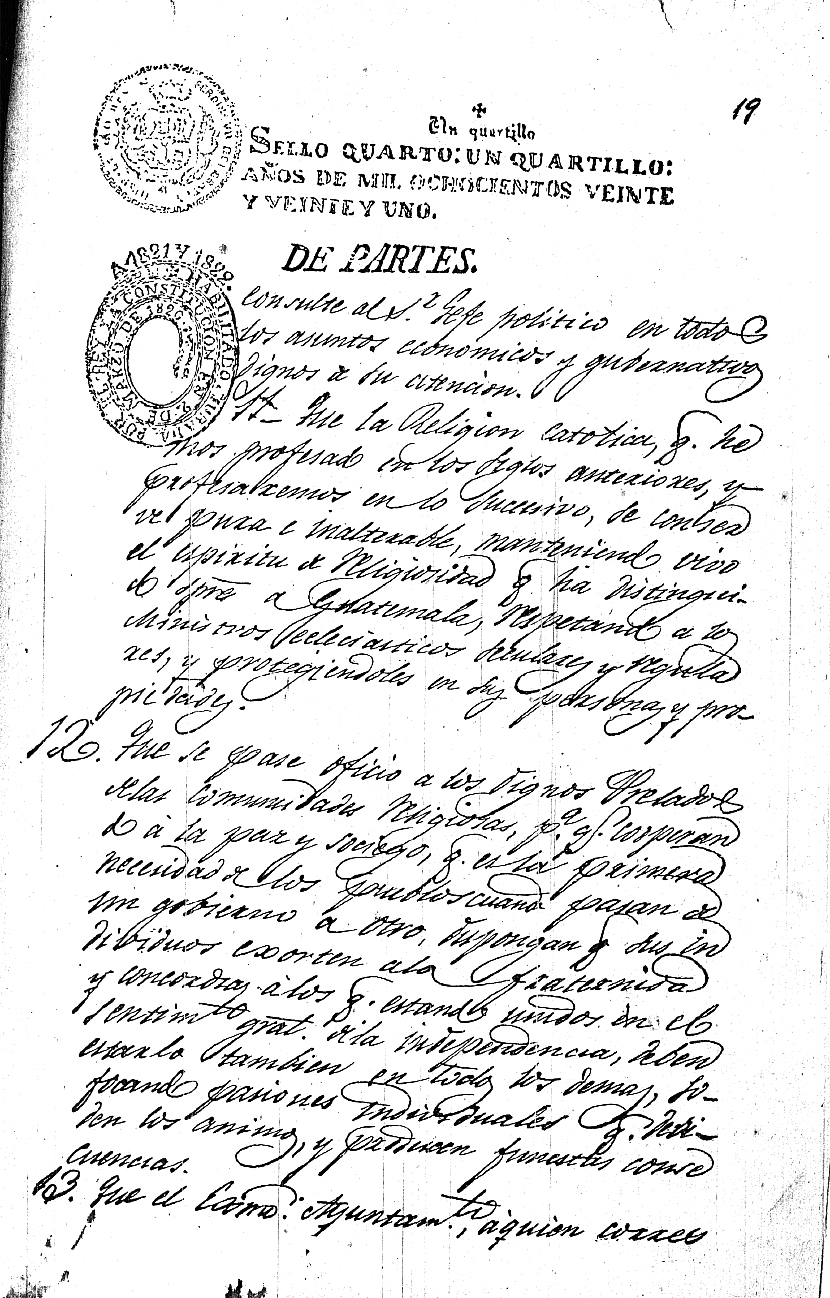 19
Un quartillo
SELLO QUARTO: UN QUARTILLO:
AÑOS DE MIL OCHOCIENTOS VEINTE
Y VEINTE Y UNO.
A 1821 Y 1822.
HABILITADO, JURADA POR EL REY LA CONSTITUCION EN 9 DE MARZO DE 1820.
DE PARTES.
consulte al S.r Gefe politico en todo
los asuntos economicos y gubernativo
dignos d su atencion.
11. Que la Religion catolica, q. he
mos profesad en los siglos anteriores, y
profesaremos en lo sucesivo, se conser
ve pura e inalterable, manteniend vivo
el espiritu d religiosidad q ha distingui-
d spre a Guatemala, respetand a los
Ministros eclesiasticos seculares y regula
res, y protegiendoles en sus personas y pro-
piedades.
12. Que se pase oficio a los dignos Prelados
delas comunidades religiosas, p.a q.e cooperan
d à la paz y sociego, q. es la primera
necesidad d los pueblos cuand pasan d
un gobierno a otro, dispongan q sus in
dividuos exorten ala fraternidad
y concordia à los q. estand unidos en el
sentim.to gral. dela independencia, deben
estarlo tambien en todos los demas, so-
focand pasiones individuales q. divi-
den los animos, y producen funestas conse
cuencias.
13. Que el Exmo. Ayuntam.to, à quien corres